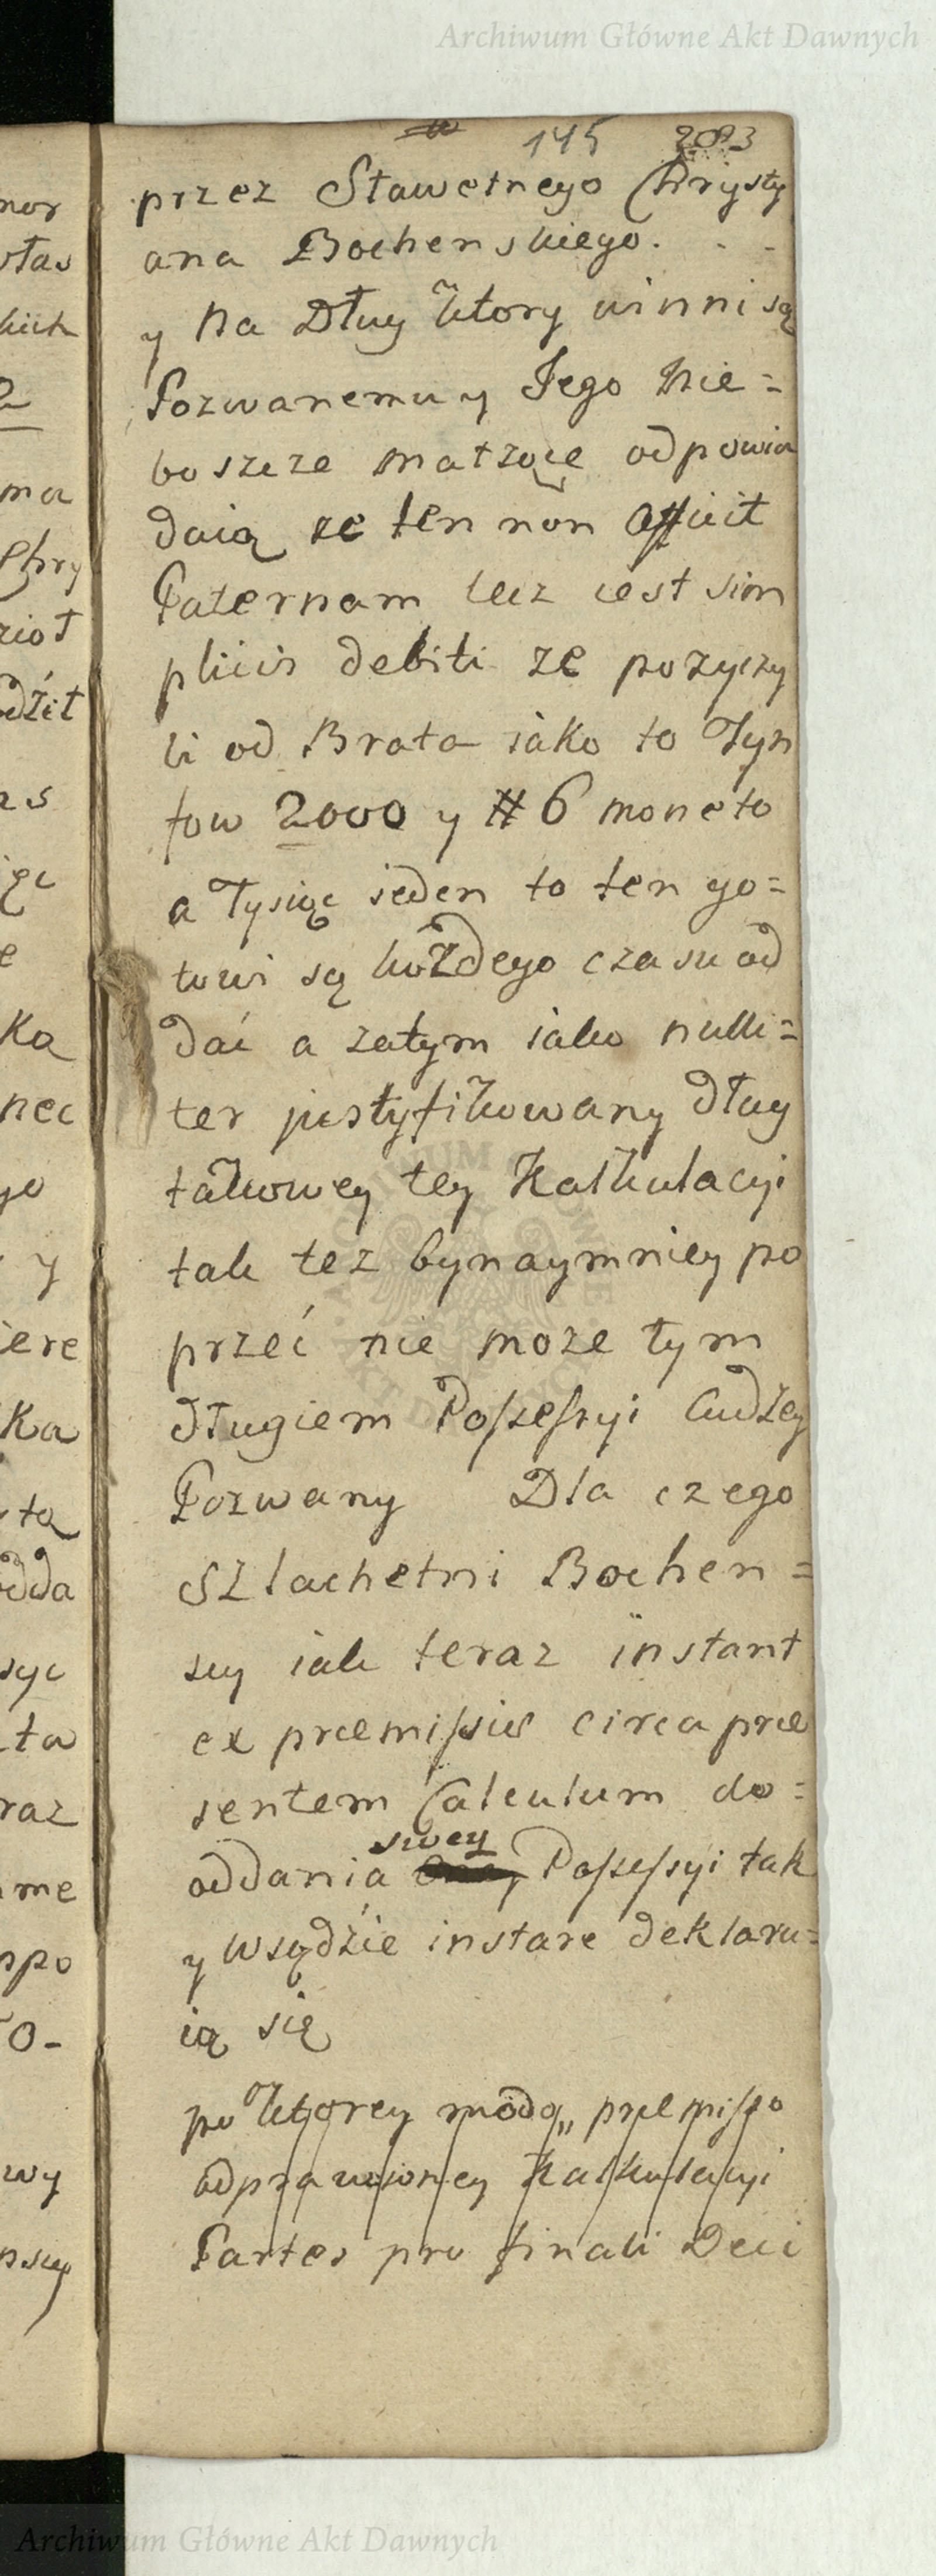 Archiwum Główne Akt Dawnych
145 2093
przez Sławetnego Chrysty
ana Bochenskiego. - -
y Na Dług ktory winni są
Pozwanemu y Jego Nie=
boszcze małzące odpowia
daią ze ten non afficit
Paternam lecz iest sim
plicis debiti ze pozyczy
li od Brata iako to Tyn
fow 2000 y # 6 moneto
a Tysiąc ieden to ten go=
towi są kożdego czasu od
dać a zatym iako nulli=
ter justyfikowany dług
takowey tey Kalkulacyi
tak tez bynaymniey po
przeć nie moze tym
długiem Possessyi Cudzey
Pozwany Dla czego
Szlachetni Bochen=
scy iak teraz instant
ex præmissis circa præ
sentem Calculum do=
swey
oddania Possessyi tak
y wsądzie instare deklaru=
ią się
po ktorey modo præmisso
odprawioney Kalkulacyi
Partes pro finali Deci
nor
kich
ma
Chry
zioł
ędził
as
ięc
e
Ka
nec
go
y
iere
Ka
tą
odda
syc
ta
raz
me
ppo
O-
wy
Archiwum Główne Akt Dawnych